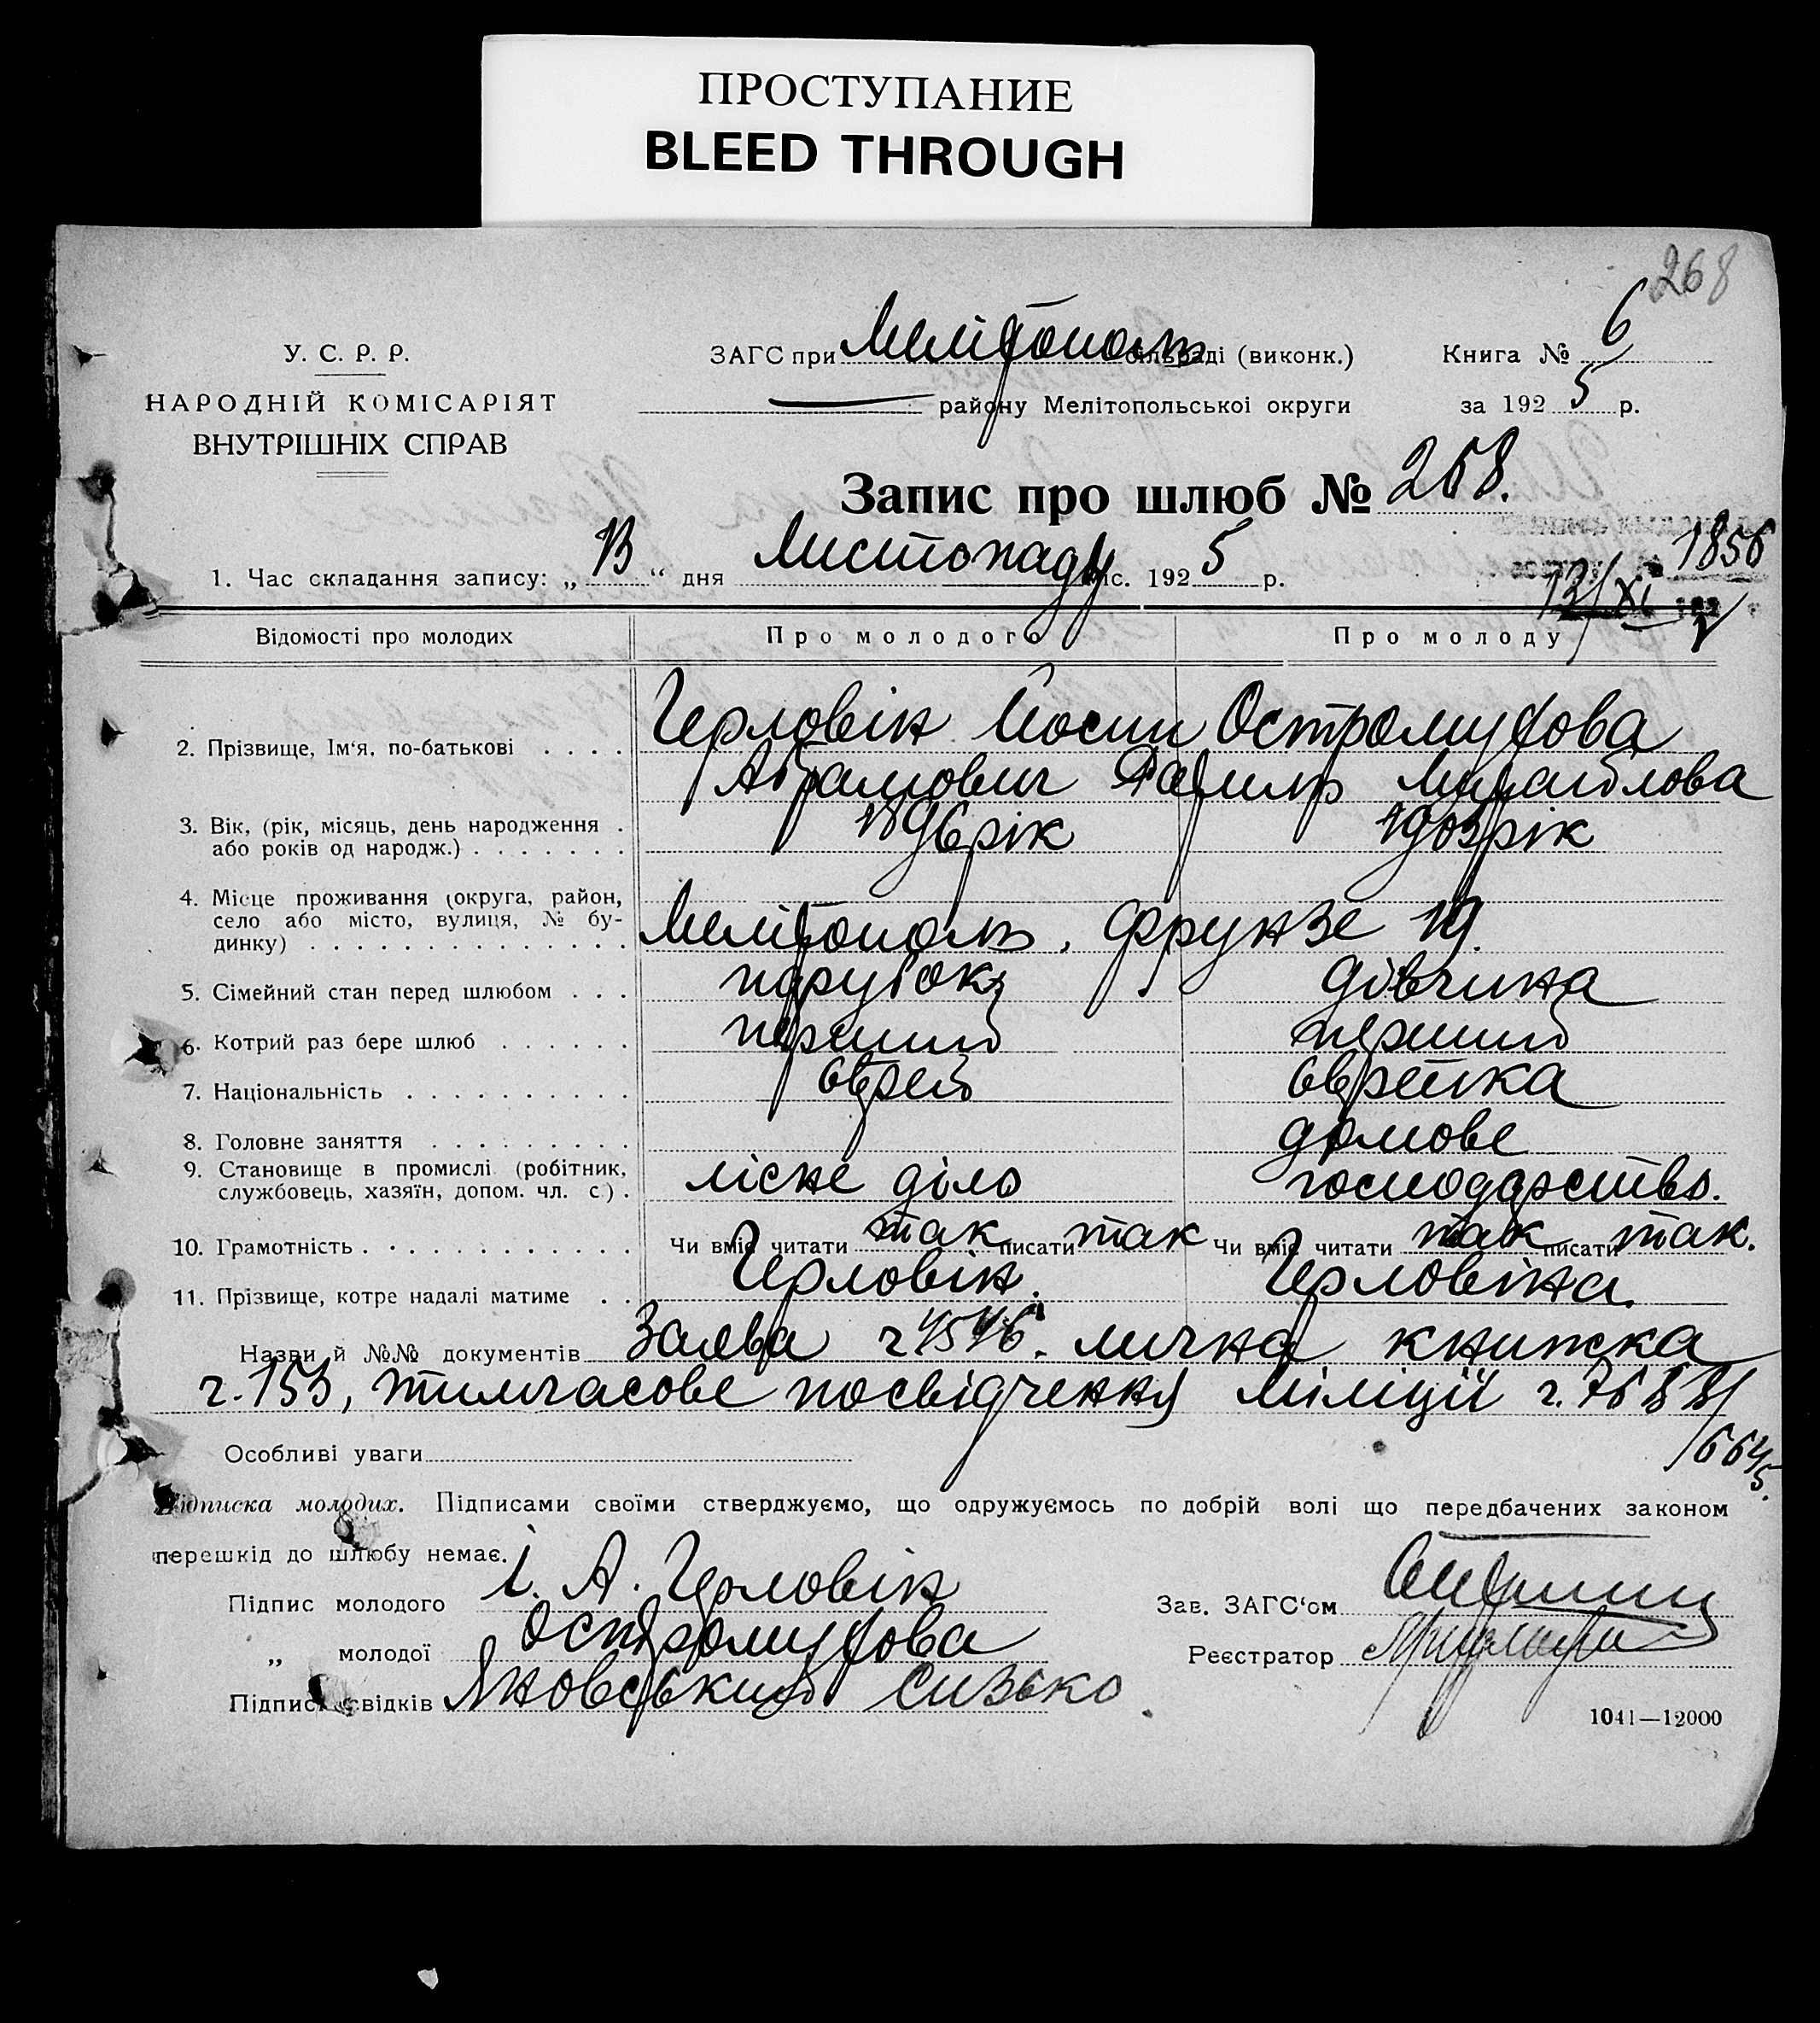 ПРОСТУПАНИЕ
BLEED THROUGH
268
У. С. Р. Р.
НАРОДНІЙ КОМІСАРІЯТ
ВНУТРІШНІХ СПРАВ
ЗАГС при Мелітополь сільраді (виконк.)
Книга № 6
району Мелітопольської округи
за 1925 р.
Запис про шлюб № 268.
1856
1. Час складання запису: „13“ дня Листопаду міс. 1925 р.
13/XI 192
Відомості про молодих Про молодого Про молоду
2. Прізвище, Ім‘я, по-батькові . . . . Черловін Йосип Остромухова
Абрамович Рахиль Михайлова
3. Вік, (рік, місяць, день народження . 1896 рік 1903 рік
або років од народж.) . . . . . . .
4. Місце проживання (округа, район,
село або місто, вулиця, № бу-
динку) . . . . . . . . . . . . . . Мелітополь, Фрунзе 19.
5. Сімейний стан перед шлюбом . . . парубок дівчина
6. Котрий раз бере шлюб . . . . . . перший перший
7. Національність . . . . . . . . . . єврей єврейка
8. Головне заняття . . . . . . . . . домове
9. Становище в промислі (робітник,
службовець, хазяїн, допом. чл. с.) . лісне діло господарство.
10. Грамотність . . . . . . . . . . . . Чи вміє читати так писати так Чи вміє читати так писати так.
11. Прізвище, котре надалі матиме . . Черловін. Черловіна.
Назви й №№ документів Заява ч 4546. лична книжка
ч. 153, тимчасове посвідчення міліції ч. 7688/
6645.
Особливі уваги
Підписка молодих. Підписами своїми стверджуємо, що одружуємось по добрій волі що передбачених законом
перешкід до шлюбу немає.
Підпис молодого І. А. Черловін
Зав. ЗАГС‘ом
„ молодої Остромухова
Реєстратор
Підпис свідків Яновський Сизько
1041—12000